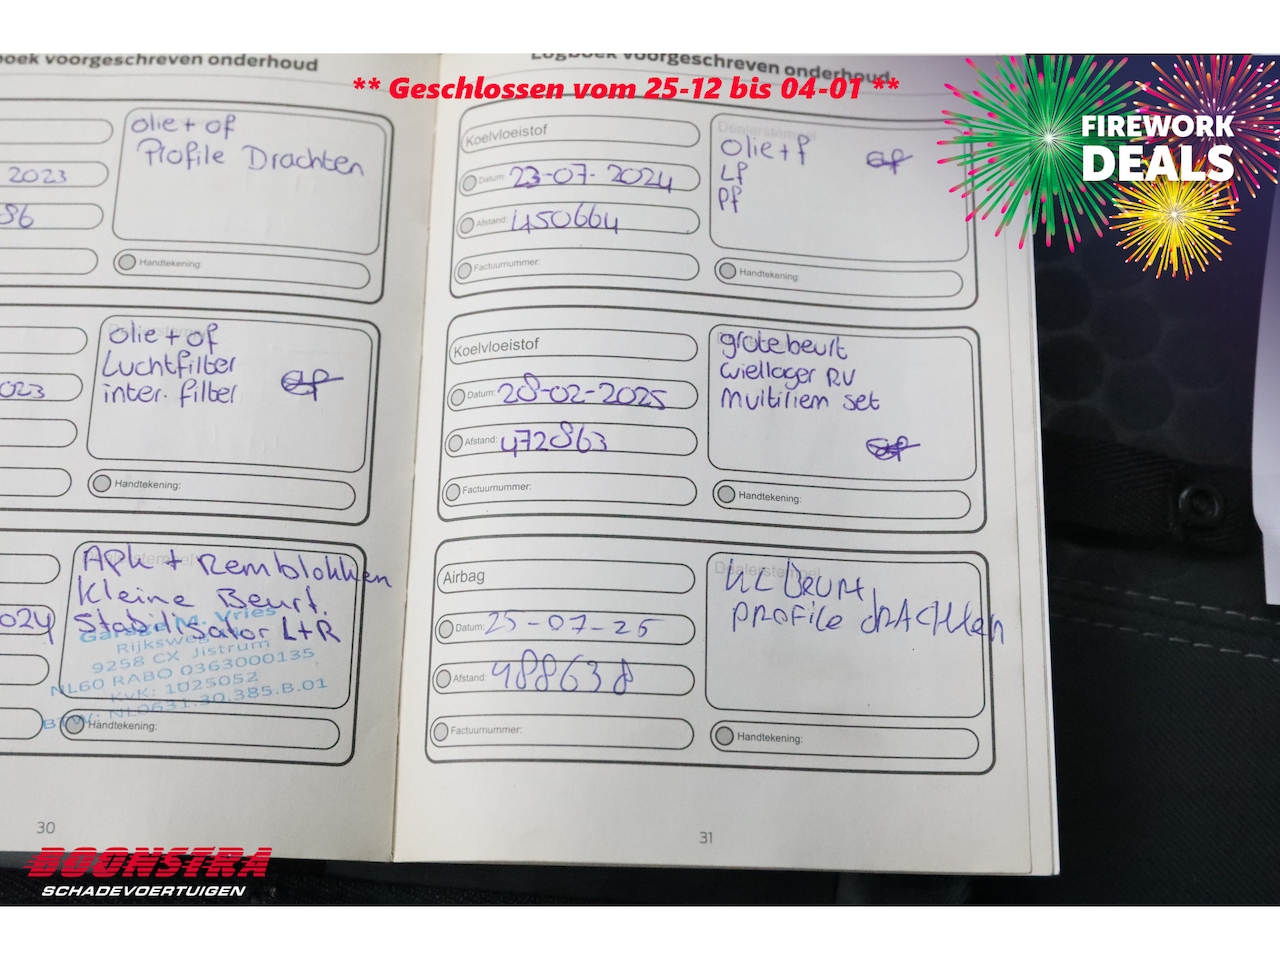 boek voorgeschreven onderhoud
olie + of
Profile Drachten
2023
Handtekening:
olie + of
Luchtfilter
inter. filter
023
Handtekening:
Apk + Remblokken
Kleine Beurt.
Stabilisator L+R
024
Garage M. Vries
Rijksweg
9258 CX Jistrum
NL60 RABO 0363000135
KvK: 1025052
BTW: NL0631.30.385.B.01
Handtekening:
30
Logboek voorgeschreven onderhoud
** Geschlossen vom 25-12 bis 04-01 **
FIREWORK
DEALS
Koelvloeistof
Datum: 23-07-2024
Afstand: 450664
Factuurnummer:
Dealerstempel
olie + f
Lf
Pf
Handtekening:
Koelvloeistof
Datum: 28-02-2025
Afstand: 472863
Factuurnummer:
grote beurt
wiellager RV
Multiriem set
Handtekening:
Airbag
Datum: 25-07-25
Afstand: 488638
Factuurnummer:
Dealerstempel
KL BEURT
PROFILE DRACHTEN
Handtekening:
31
BOONSTRA
SCHADEVOERTUIGEN